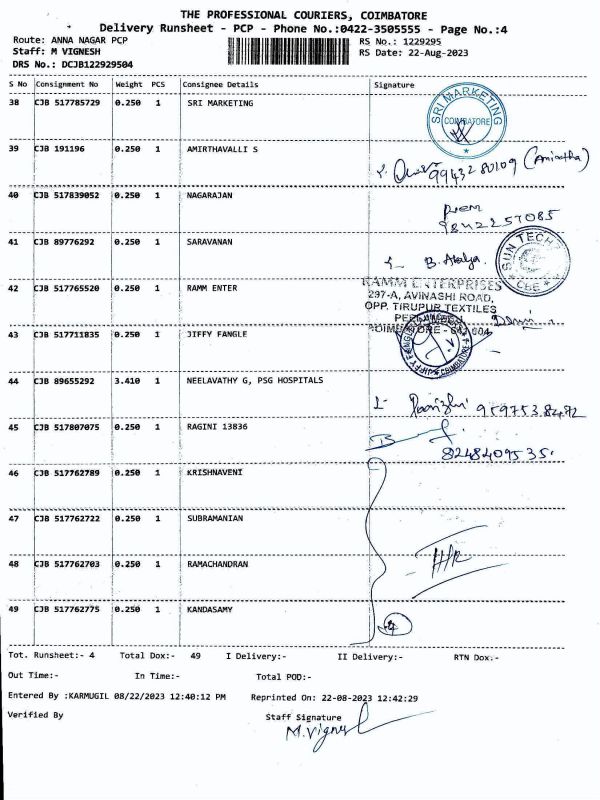 THE PROFESSIONAL COURIERS, COIMBATORE
Delivery Runsheet - PCP - Phone No.:0422-3505555 - Page No.:4
Route: ANNA NAGAR PCP RS No.: 1229295
Staff: M VIGNESH RS Date: 22-Aug-2023
DRS No.: DCJB122929504
S No Consignment No Weight PCS Consignee Details Signature
38 CJB 517785729 0.250 1 SRI MARKETING
SRI MARKETING
COIMBATORE
39 CJB 191196 0.250 1 AMIRTHAVALLI S
9943280109 (Anitha)
40 CJB 517839052 0.250 1 NAGARAJAN
prem
9842257085
41 CJB 89776292 0.250 1 SARAVANAN
SUN TECH
CBE
42 CJB 517765520 0.250 1 RAMM ENTER
RAMM ENTERPRISES
297-A, AVINASHI ROAD,
OPP. TIRUPUR TEXTILES
COIMBATORE - 641 004
43 CJB 517711835 0.250 1 JIFFY FANGLE
JIFFY FANGLE
COIMBATORE
44 CJB 89655292 3.410 1 NEELAVATHY G, PSG HOSPITALS
9597538472
45 CJB 517807075 0.250 1 RAGINI 13836
8248409535.
46 CJB 517762789 0.250 1 KRISHNAVENI
47 CJB 517762722 0.250 1 SUBRAMANIAN
48 CJB 517762703 0.250 1 RAMACHANDRAN
49 CJB 517762775 0.250 1 KANDASAMY
4
Tot. Runsheet:- 4 Total Dox:- 49 I Delivery:- II Delivery:- RTN Dox:-
Out Time:- In Time:- Total POD:-
Entered By :KARMUGIL 08/22/2023 12:40:12 PM Reprinted On: 22-08-2023 12:42:29
Verified By Staff Signature
M.Vignesh